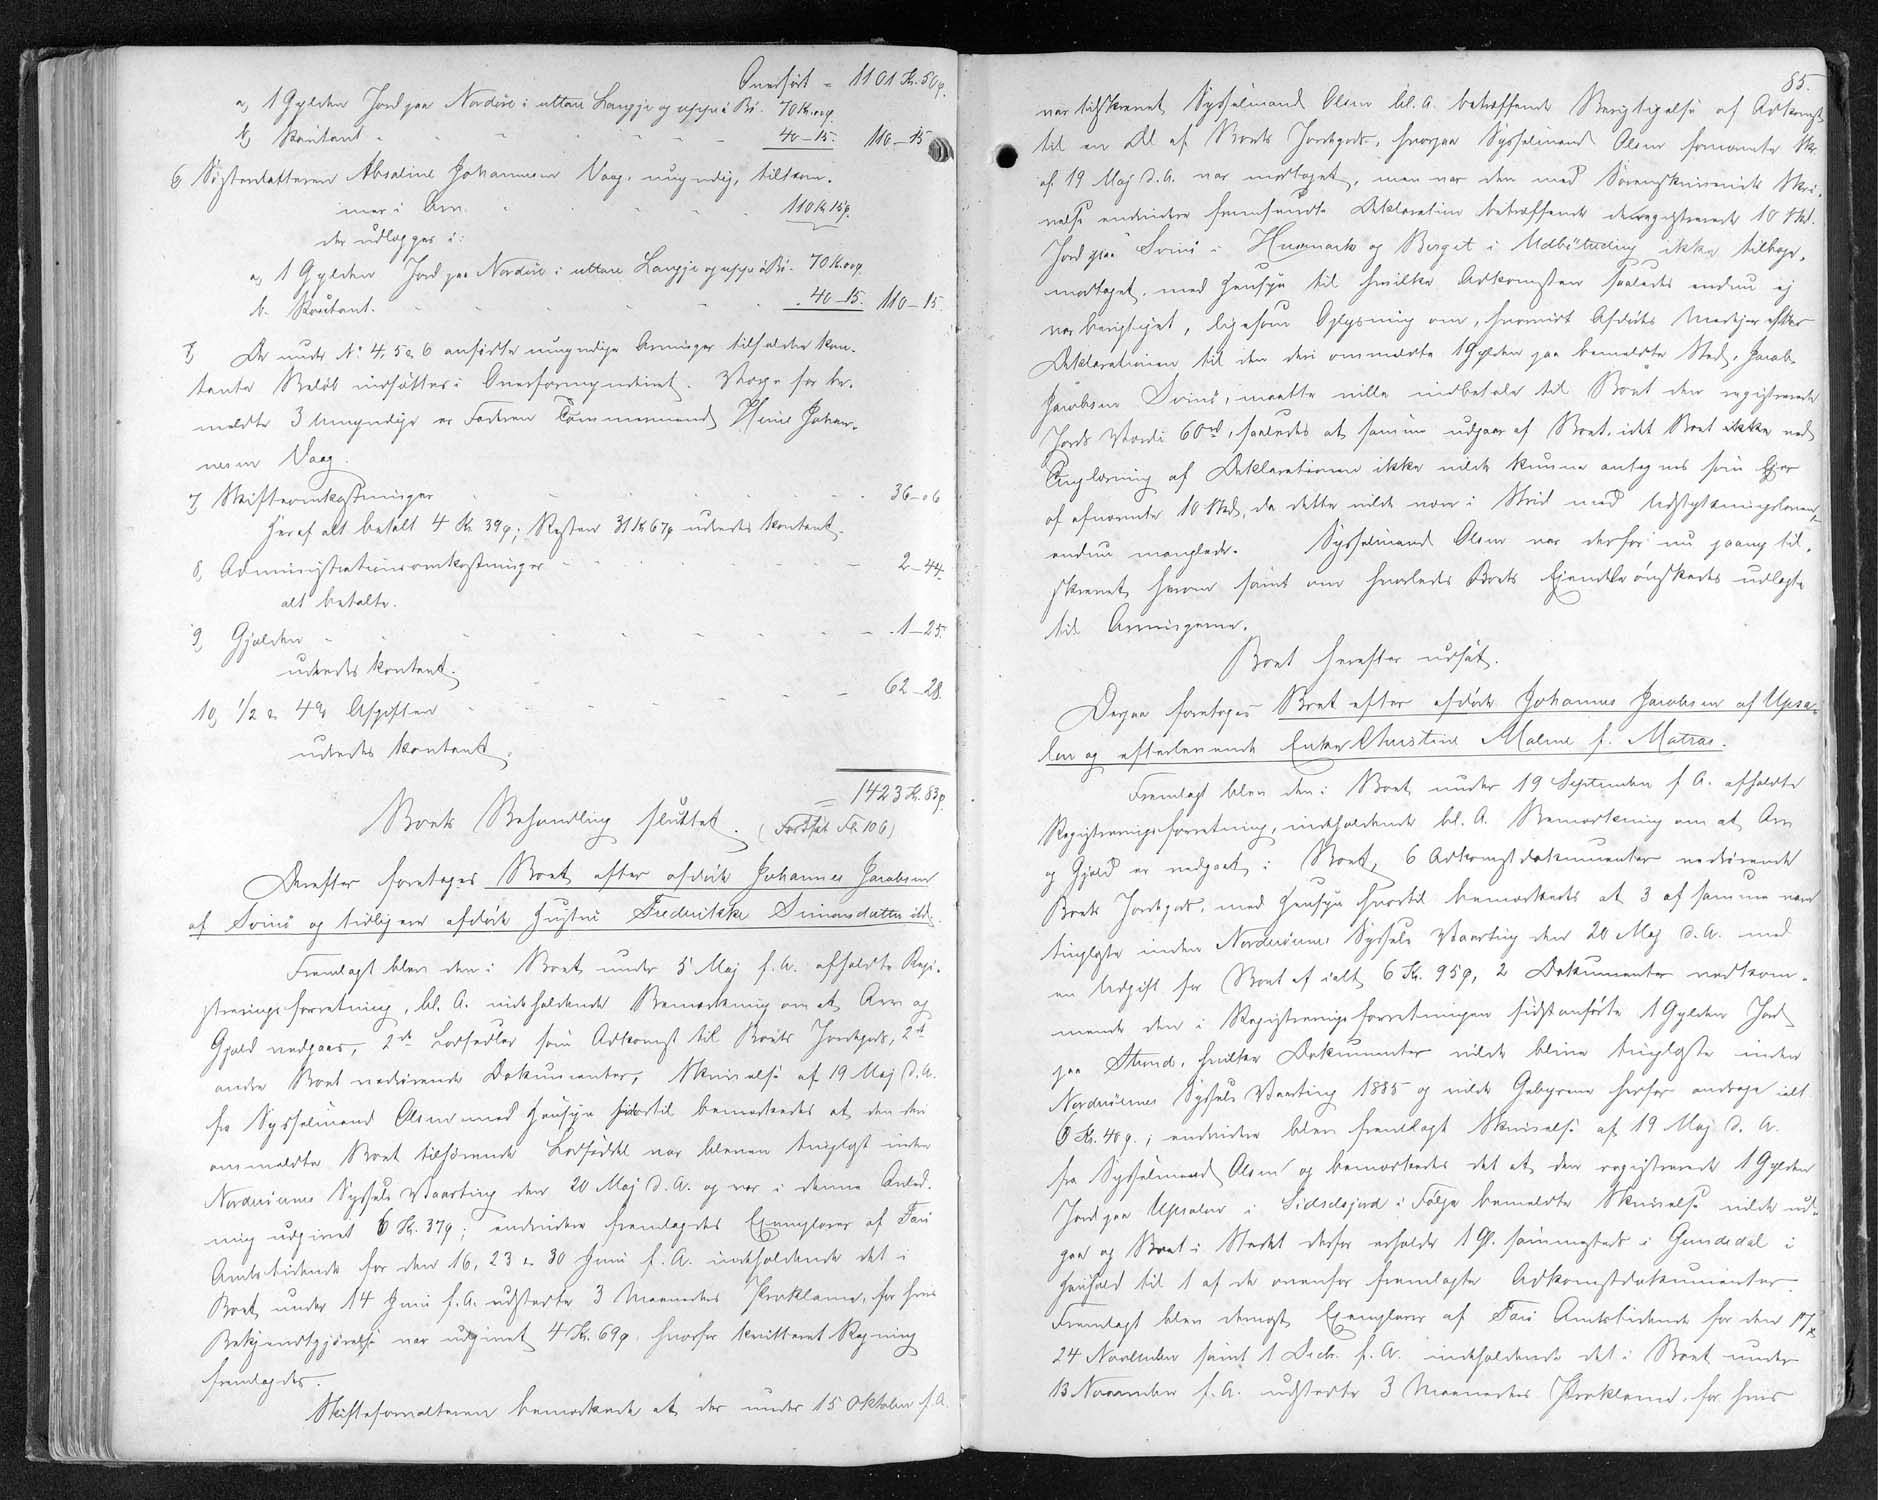 Overført = 1101 Kr. 50 ø.
a, 1 Gylden Jord paa Norddre i uttare Langje og uppe á Bø - 70 Kr. 00 ø.
b, Kontant - 40 – 15. 110 – 15
6, Søsterdatteren Absaline Johannesen Vaag, umyndig, tilkom-
mer i Arv. 110 Kr. 15 ø.
der udlægges i:
a, 1 Gylden Jord paa Norddre i uttare Langje og uppe á Bø - 70 Kr. 00 ø.
b. Kontant. 40 – 15. 110 – 15.
De under No 4, 5 & 6 anførte umyndige Arvinger tilfaldne kon-
tante Beløb indsættes i Overformynderiet. Værge for be-
meldte 3 Umyndige er Faderen Tømmermand Heine Johan-
nesen Vaag.
7, Skifteomkostninger 36 – 06
heraf alt betalt 4 Kr. 39 ø; Resten 31 Kr 67 ø udredes kontant.
8, Administrationsomkostninger 2 – 44.
alt betalte.
9, Gjælden 1 – 25.
udredes kontant.
10, 1/2 & 4% Afgiften 62 – 28.
udredes kontant.
= 1423 Kr. 83 ø.
Boets Behandling sluttet. (Fortsat Fol. 106)
Derefter foretoges Boet efter afdøde Johannes Jacobsen
af Svinø og tidligere afdøde Hustru Frederikke Simonsdatter ibd.
Fremlagt blev den i Boet under 5 Maj f. A. afholdte Regi-
streringsforretning, bl. A. indeholdende Bemærkning om at Arv og
Gjæld vedgaas, 2de Lodsedler som Adkomst til Boets Jordegods, 2de
andre Boet vedrørende Dokumenter, Skrivelse af 19 Maj d. A.
fra Sysselmand Olsen med Hensyn hvortil bemærkedes at den deri
ommeldte Boet tilhørende Lodseddel var bleven tinglæst inden
Norderøernes Syssels Vaarting den 20 Maj d. A. og var i denne Anled-
ning udgivet 6 Kr. 37 ø; endvidere fremlagdes Exemplarer af Færø
Amtstidende for den 16, 23 & 30 Juni f. A. indeholdende det i
Boet under 14 Juni f. A. udstedte 3 Maaneders Proklama, for hvis
Bekjendtgjørelse var udgivet 4 Kr. 69 ø. hvorfor kvitteret Regning
fremlagdes.
Skifteforvalteren bemærkede at der under 15 Oktober f. A.
85.
var tilskrevet Sysselmand Olsen bl. A. betræffende Berigtigelse af Adkomst
til en Del af Boets Jordegods, hvorpaa Sysselmand Olsen fornævnte Skr.
af 19 Maj d. A. var modtaget, men var den med Sorenskriveriets Skri-
velse endvidere fremsendte Deklaration betræffende de registrerede 10 Skd.
Jord paa Svinø i Husmark og Berget i Udbøtuding ikke tilbage-
modtaget, med Hensyn til hvilke Adkomsten saaledes endnu ej
var berigtiget, ligesom Oplysning om, hvorvidt Afdødes Medejer efter
Deklarationen til den deri ommeldte 1 Gylden paa bemeldte Sted, Jacob
Jacobsen Svinø, maatte ville indbetale til Boet den registrerede
Jords Værdi 60 rd, saaledes at samme udgaar af Boet, idet Boet ikke ved
Tinglæsning af Deklarationen ikke vilde kunne antages som Ejer
af afnævnte 10 Skd, da dette vilde være i Strid med Udstykningsloven,
endnu manglede. Sysselmand Olsen var derfor nu paany til-
skrevet herom samt om hvorledes Boets Ejendele ønskedes udlagte
til Arvingerne.
Boet herefter udsat.
Derpaa foretoges Boet efter afdøde Johannes Jacobsen af Upsa-
len og efterlevende Enke Christine Malene f. Matras.
Fremlagt blev den i Boet under 19 September f. A. afholdte
Registreringsforretning, indeholdende bl. A. Bemærkning om at Arv
og Gjæld er vedgaaet i Boet, 6 Adkomstdokumenter vedrørende
Boets Jordegods, med Hensyn hvortil bemærkedes at 3 af samme vare
tinglæste inden Norderøernes Syssels Vaarting den 20 Maj d. A. med
en Udgift for Boet af ialt 6 Kr. 95 ø, 2 Dokumenter vedkom-
mende den i Registreringsforretningen sidstanførte 1 Gylden Jord
paa Strand, hvilke Dokumenter vilde blive tinglæste inden
Norderøernes Syssels Vaarting 1885 og vilde Gebyrerne herfor andrage ialt
6 Kr. 40 ø.; endvidere blev fremlagt Skrivelse af 19 Maj d. A.
fra Sysselmand Olsen og bemærkedes det at den registrerede 1 Gylden
Jord paa Upsalen i Sidselsjord i Følge bemeldte Skrivelse vilde ud-
gaa og Boet i Stedet derfor erholde 1 Gl. sammesteds i Gundedal i
Henhold til 1 af de ovenfor fremlagte Adkomstdokumenter.
Fremlagt blev dernæst Exemplarer af Færø Amtstidende for den 17,
24 November samt 1 Decbr. f. A. indeholdende det i Boet under
13 November f. A. udstedte 3 Maaneders Proklama, for hvis